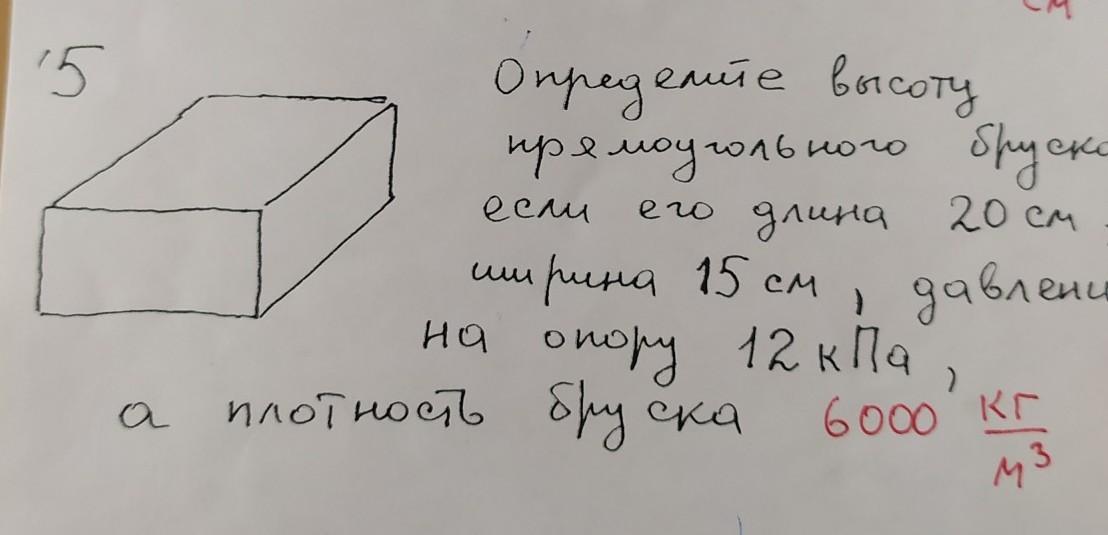 см
5
Определите высоту
прямоугольного бруска
если его длина 20 см
ширина 15 см, давлени
на опору 12 кПа,
а плотность бруска 6000 кг/м³